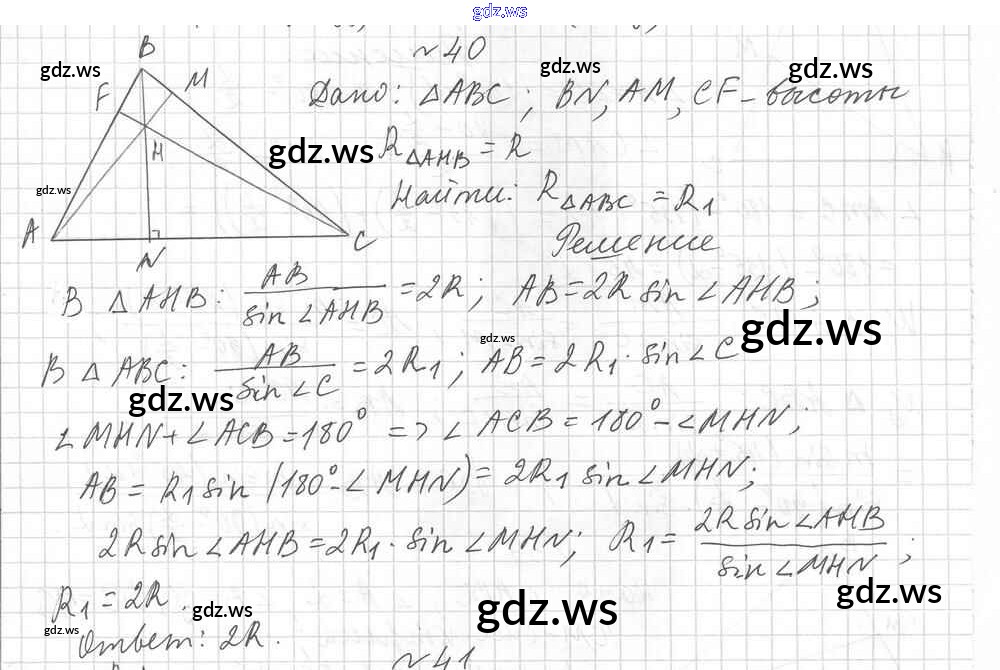 gdz.ws
№40
B
M
F
H
A
C
N
gdz.ws
gdz.ws
gdz.ws
Дано: △ABC; BN, AM, CF - высоты
gdz.ws
R△AHB = R
gdz.ws
Найти: R△ABC = R1
Решение
В △AHB: AB / sin∠AHB = 2R; AB = 2R sin∠AHB;
gdz.ws
gdz.ws
В △ABC: AB / sin∠C = 2R1; AB = 2R1 · sin∠C
gdz.ws
∠MHN + ∠ACB = 180° => ∠ACB = 180° - ∠MHN;
AB = R1 sin (180° - ∠MHN) = 2R1 sin∠MHN;
2R sin∠AHB = 2R1 · sin∠MHN; R1 = 2R sin∠AHB / sin∠MHN;
gdz.ws
R1 = 2R.
gdz.ws
gdz.ws
gdz.ws
Ответ: 2R.
№41